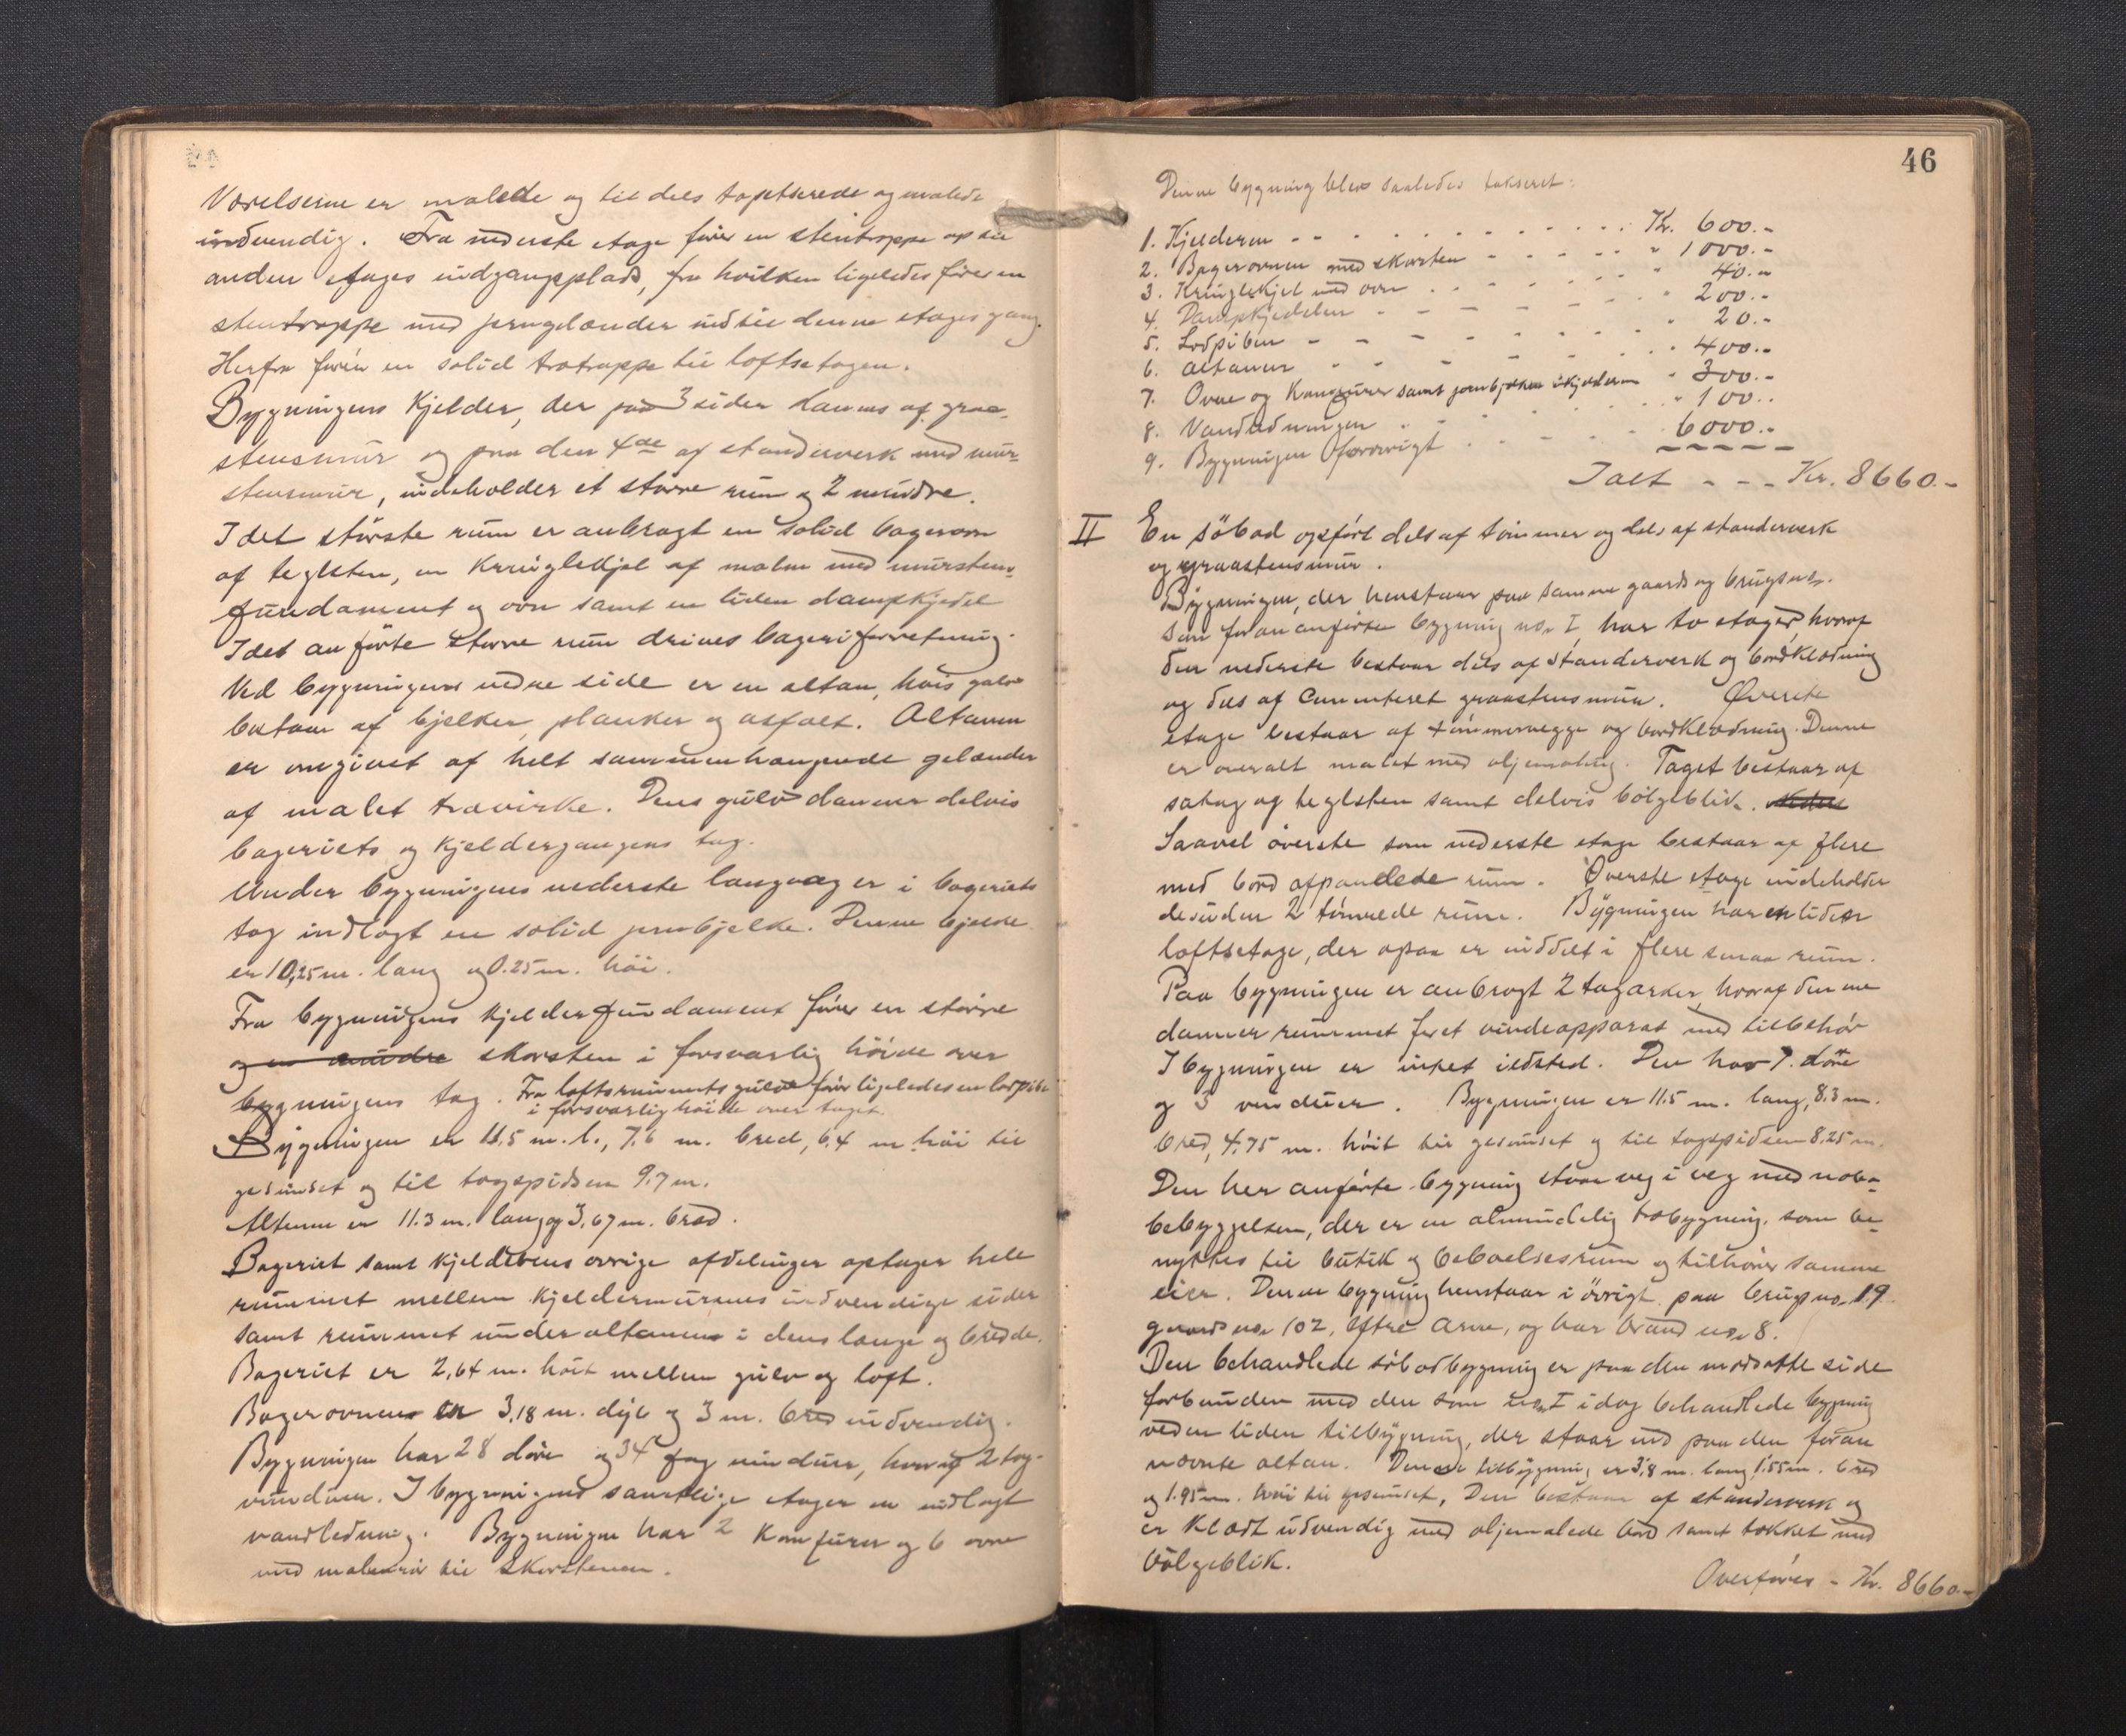 Værelserne er malede og til dels tapetserede og malede
indvendig. Fra nederste etage fører en stentrappe op til
anden etages indgangsplads, fra hvilken ligeledes fører en
stentrappe med jerngelænder ind til denne etages gang.
Herfra fører en solid trætrappe til loftsetagen.
Bygningens Kjelder, der paa 3 sider dannes af graa-
stensmur og paa den 4de af standerverk med mur-
stensmur, indeholder et større rum og 2 mindre.
I det største rum er anbragt en solid bagerovn
af teglsten, en Kringlekjel af malm med murstens-
fundament og ovn samt en liden dampkjedel
I det anførte større rum drives bageriforretning.
Ved bygningens nedre side er en altan, hvis gulv
bestaar af bjelker, planker og asfalt. Altanen
er omgivet af helt sammenhængende gelænder
af malet trævirke. Dens gulv danner delvis
bageriets og kjeldergangens tag.
Under bygningens nederste langvæg er i bageriets
tag indlagt en solid jernbjelke. Denne bjelke
er 10,25 m. lang og 0.25 m. høi.
Fra bygningens kjelderfundament fører en større
og en mindre skorsten i forsvarlig høide over
bygningens tag. Fra loftsrummets gulv fører ligeledes en lodpibe
i forsvarlig høide over taget.
Bygningen er 11.5 m. l., 7.6 m. bred, 6,4 m høi til
gesimset og til tagspidsen 9.7 m.
Altanen er 11.3 m. lang og 3,67 m. bred.
Bageriet samt kjelderens øvrige afdelinger optager hele
rummet mellem kjeldermurenes indvendige sider
samt rummet under altanen i dens længe og bredde.
Bageriet er 2,64 m. høit mellem gulv og loft.
Bagerovnen er 3,18 m. dyb og 3 m. bred indvendig.
Bygningen har 28 døre og 34 fag vinduer, hvoraf 2 tag-
vinduer. I bygningens samtlige etager er indlagt
vandledning. Bygningen har 2 Komfurer og 6 ovne
med malmrør til skorstenen.
46
Denne bygning blev saaledes takseret:
1. Kjelderen - - . . . . Kr. 600.-
2. Bagerovnen med skorsten - - - " 1000.-
3. Kringlekjel med ovn . . . " 40.-
4. Dampkjedelen - - - " 200.-
5. Lodpiben - - - " 20.-
6. Altanen - - - " 400.-
7. Ovne og Komfurer samt jernbjelken i kjelderen " 300.-
8. Vandledningen . . . " 100.-
9. Bygningen forøvrigt . . . 6000.-
Ialt - - - Kr. 8660.-
II En søbod opført dels af tømmer og dels af standerverk
og graastensmur.
Bygningen, der henstaar paa samme gaards og brugsno.
som foran anførte bygning no. I, har to etager, hvoraf
den nederste bestaar dels af standerverk og bordklædning
og dels af cementeret graastensmur. Øverste
etage bestaar af tømmervegge og bordklædning. Denne
er overalt malet med oljemaling. Taget bestaar af
sutag og teglsten samt delvis bølgeblik.
Saavel øverste som nederste etage bestaar af flere
med bord afpanelede rum. Øverste etage indeholder
desuden 2 tømrede rum. Bygningen har en liden
loftsetage, der ogsaa er inddelt i flere smaa rum.
Paa bygningen er anbragt 2 tagarker, hvoraf den ene
danner rummet for et vindeapparat med tilbehør
I bygningen er intet ildsted. Den har 7 døre
og 3 vinduer. Bygningen er 11.5 m. lang, 8.3 m.
bred, 4,75 m. høit til gesimset og til tagspidsen 8.25 m.
Den her anførte bygning staar veg i veg med nabo-
bebyggelsen, der er en almindelig træbygning, som be-
nyttes til butik og beboelsesrum og tilhører samme
eier. Denne bygning henstaar i øvrigt paa brugsno. 19
gaards no. 102, Eftre Arne, og har brand no. 8.
Den behandlede søbodbygning er paa den modsatte side
forbunden med den som no. I idag behandlede bygning
ved en liden tilbygning, der staar ind paa den foran
nævnte altan. Denne tilbygning er 3,8 m. lang, 1.55 m. bred
og 1.95 m. høi til gesimset. Den bestaar af standerverk og
er klædt udvendig med oljemalede bord samt tækket med
bølgeblik.
Overføres - Kr. 8660.-